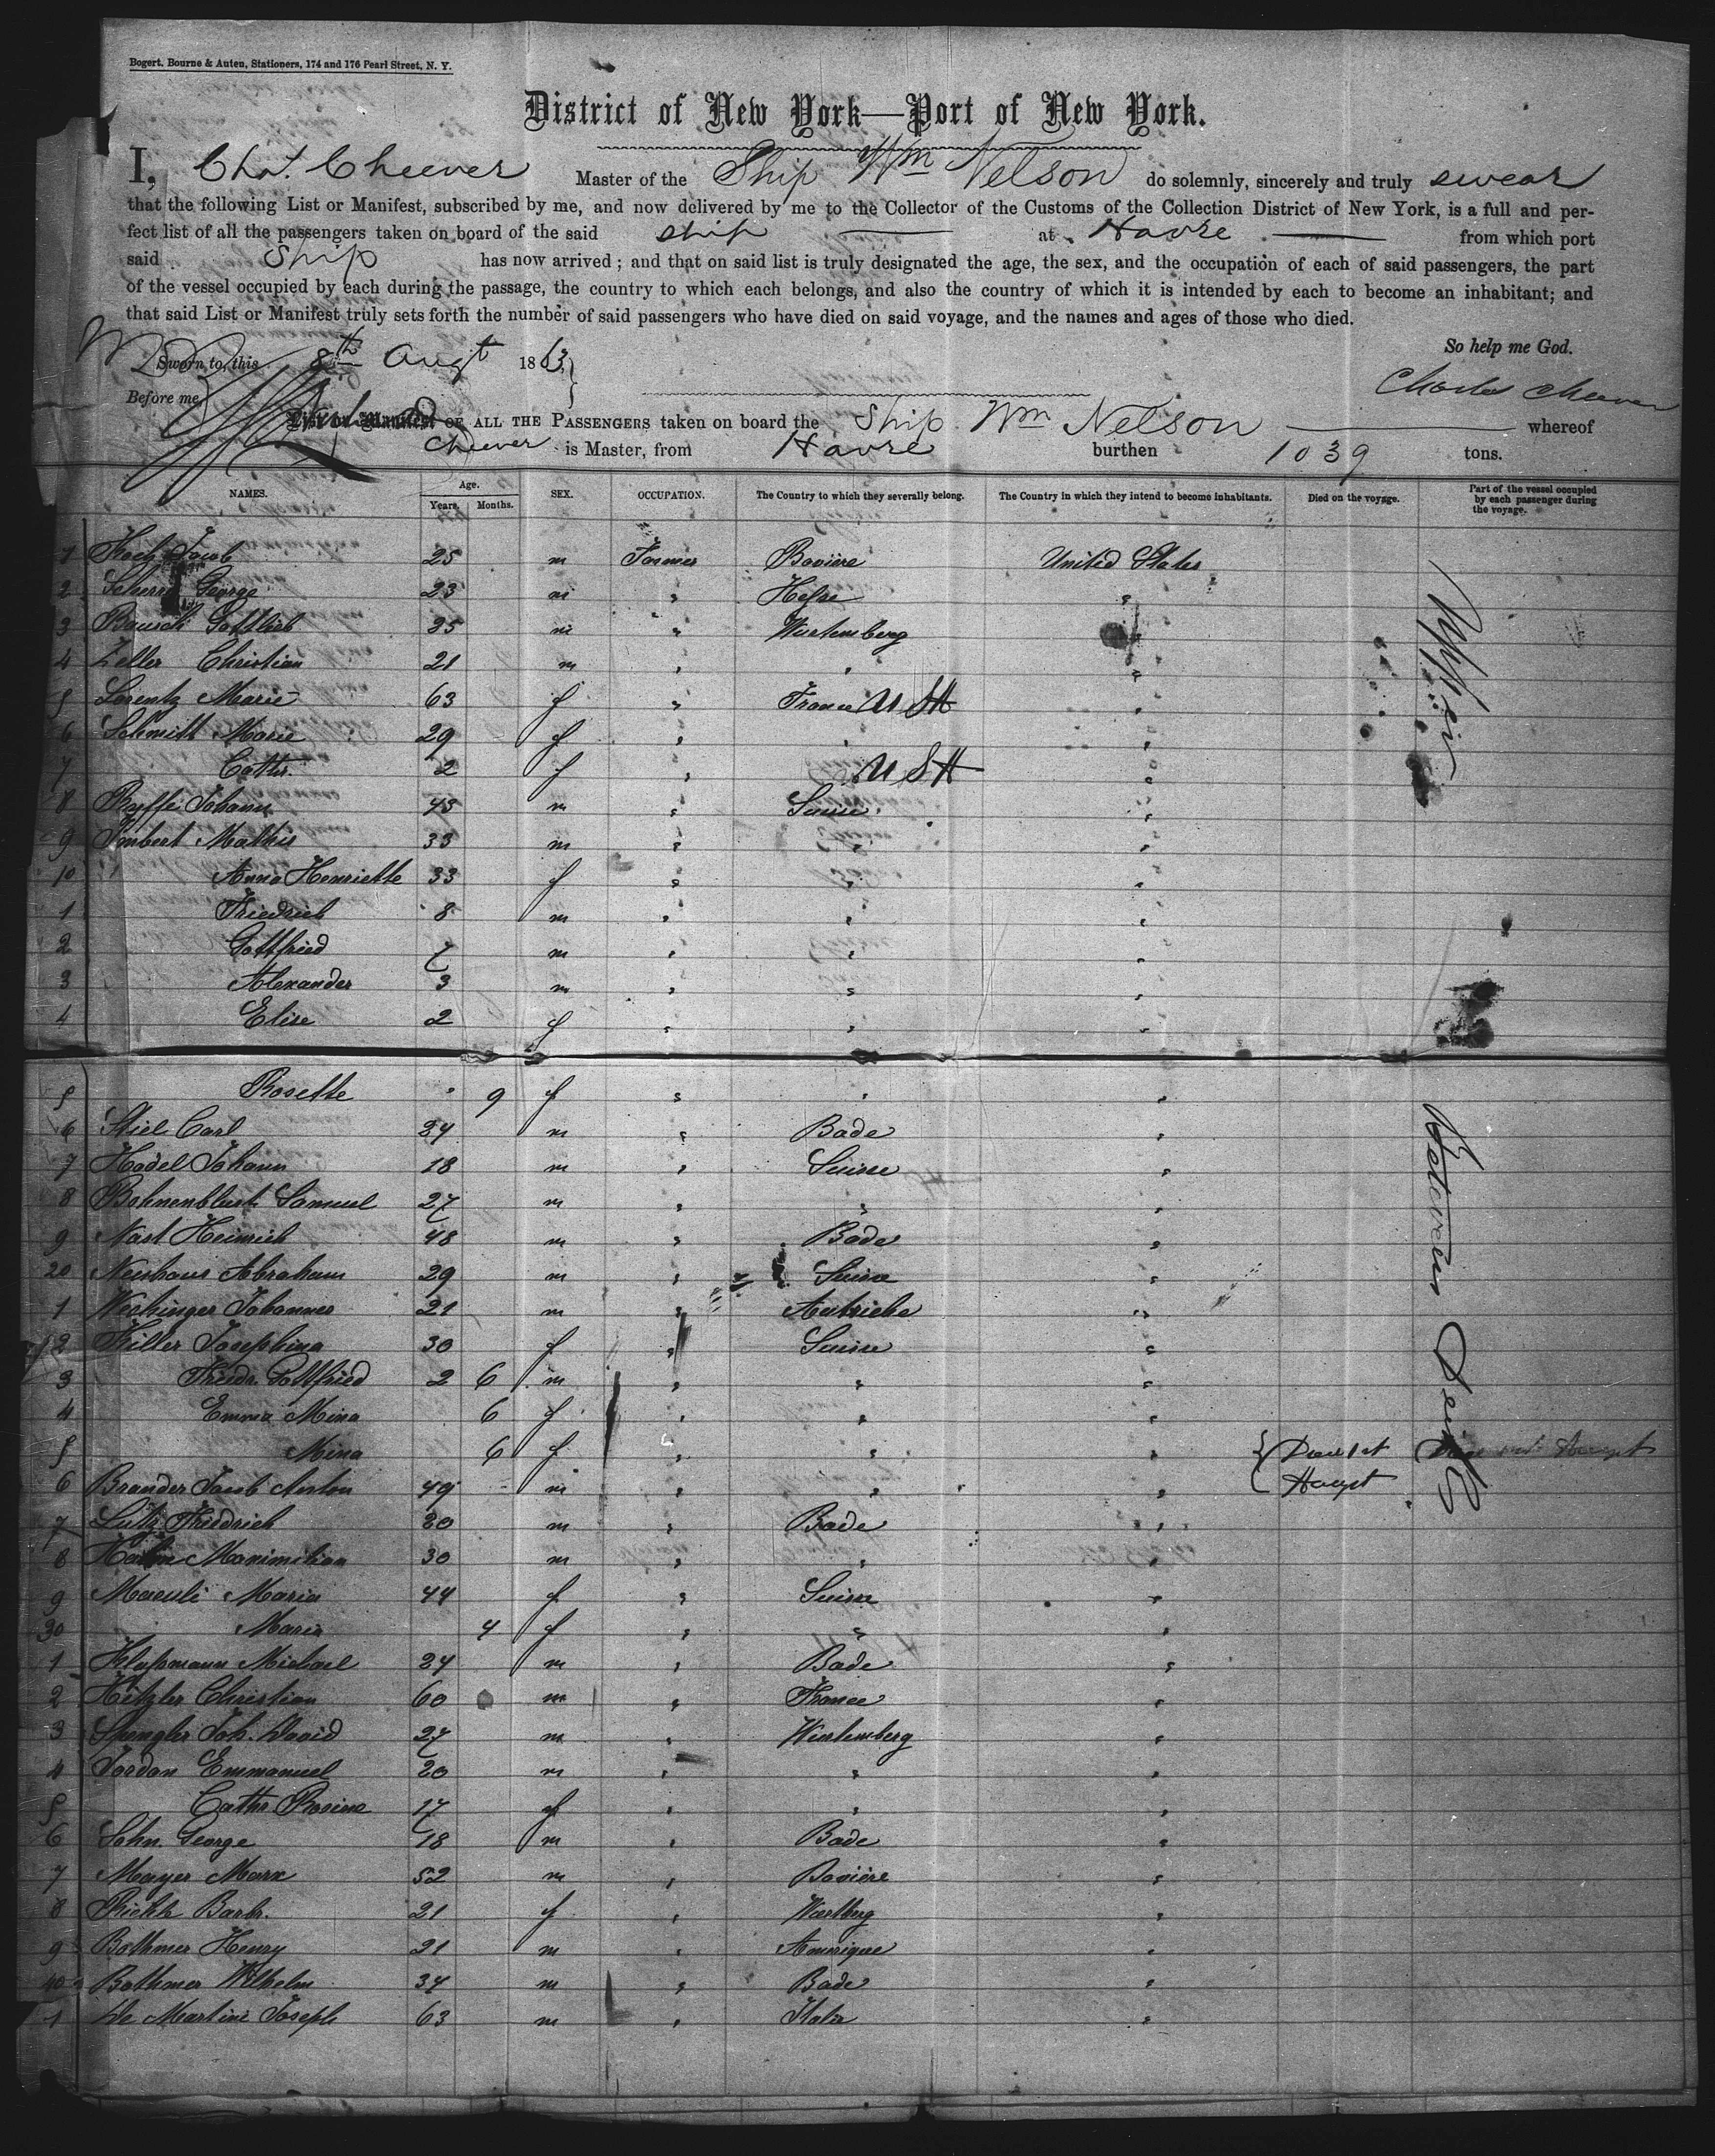 Bogert, Bourne & Auten, Stationers, 174 and 176 Pearl Street, N. Y.
District of New York—Port of New York.
I, Chs. Cheever Master of the Ship Wm Nelson do solemnly, sincerely and truly swear
that the following List or Manifest, subscribed by me, and now delivered by me to the Collector of the Customs of the Collection District of New York, is a full and per-
fect list of all the passengers taken on board of the said ship at Havre from which port
said Ship has now arrived; and that on said list is truly designated the age, the sex, and the occupation of each of said passengers, the part
of the vessel occupied by each during the passage, the country to which each belongs, and also the country of which it is intended by each to become an inhabitant; and
that said List or Manifest truly sets forth the number of said passengers who have died on said voyage, and the names and ages of those who died.
So help me God.
Sworn to, this 8th Augt 1863
Charles Cheever
Before me,
List or Manifest OF ALL THE PASSENGERS taken on board the Ship Wm Nelson whereof
Cheever is Master, from Havre burthen 1039 tons.
NAMES. Age. Years. Months. SEX. OCCUPATION. The Country to which they severally belong. The Country in which they intend to become inhabitants. Died on the voyage. Part of the vessel occupied by each passenger during the voyage.
1 Koch Jacob 25 m Farmer Bavière United States
2 Scherer George 23 m " Hesse "
3 Bausch Gottlieb 25 m " Wurtemberg "
4 Zeller Christian 21 m " " "
5 Lorentz Marie 63 f " France USA "
6 Schmitt Marie 29 f " " "
7 Cathr. 2 f " USA "
8 Ryffe Johann 43 m " Suisse "
9 Imbert Mathis 33 m " " "
10 " Anna Henriette 33 f " " "
1 Friedrich 8 m " " "
2 Gottfried 7 m " " "
3 Alexander 3 m " " "
4 Elise 2 f " " "
5 Rosette " 9 f " " "
6 Stiel Carl 24 m " Bade "
7 Hodel Johann 18 m " Suisse "
8 Bohnenblust Samuel 27 m " " "
9 Nast Heinrich 48 m " Bade "
20 Neuhaus Abraham 29 m " Suisse "
1 Wechinger Johannes 21 m " Autriche "
2 Killer Josephina 30 f " Suisse "
3 Friedr. Gottfried 2 6 m " " "
4 Emma Mina 6 f " " "
5 Mina 6 f " " "
6 Brander Jacob Anton 49 m " " "
7 Lutz Friedrich 30 m " Bade "
8 Maximilian 30 m " " "
9 Maeuli Maria 44 f " Suisse "
30 Maria 4 f " " "
1 Klassmann Michael 24 m " Bade "
2 Hitzler Christian 60 m " France "
3 Spengler Joh. David 27 m " Wurtemberg "
4 Jordan Emmanuel 20 m " " "
5 Cathr Rosine 17 f " " "
6 Sohn George 18 m " Bade "
7 Mayer Marx 52 m " Bavière "
8 Barbr. 21 f " Wurtbg "
9 Bothmer Henry 21 m " Amerique "
40 Bothmer Wilhelm 34 m " Bade "
1 De Martini Joseph 63 m " Italie "
Upper
Between Decks